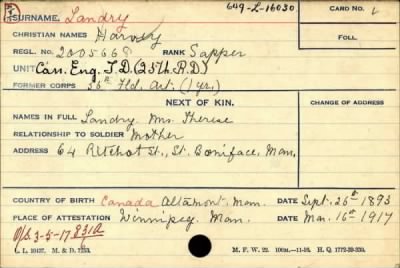 649-L-16030
SURNAME. Landry CARD NO. 1
CHRISTIAN NAMES Harvey FOLL.
REGL. NO. 2005668 RANK Sapper
UNIT Can. Eng. T.D. (25th R.D)
FORMER CORPS 36th Fld. Art. (1 yr.)
NEXT OF KIN.
CHANGE OF ADDRESS
NAMES IN FULL Landry Mrs. Therese
RELATIONSHIP TO SOLDIER Mother
ADDRESS 64 Ritchot St., St. Boniface, Man.
COUNTRY OF BIRTH Canada Altamont, Man. DATE Sept. 26th 1893
PLACE OF ATTESTATION Winnipeg. Man. DATE Mar. 16th 1917
O/S 3-5-17
L. L. M. & D. M. F. W. 22. 100M.-11-16. H. Q. 1772-39-339.